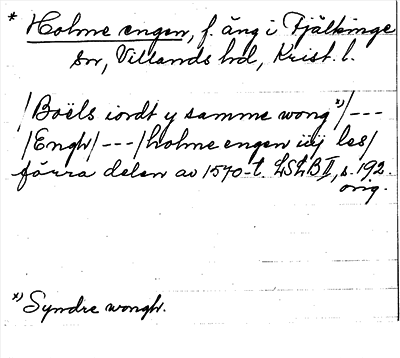 * Holme engen, f. äng i Fjälkinge
sn, Villands hd, Krist. l.
/Boëls iordt y samme wong *)/---
/Engh/---/holme engen iiij les/
förra delen av 1570-t. LSLB II, s. 192.
orig.
*) Syndre wongh.